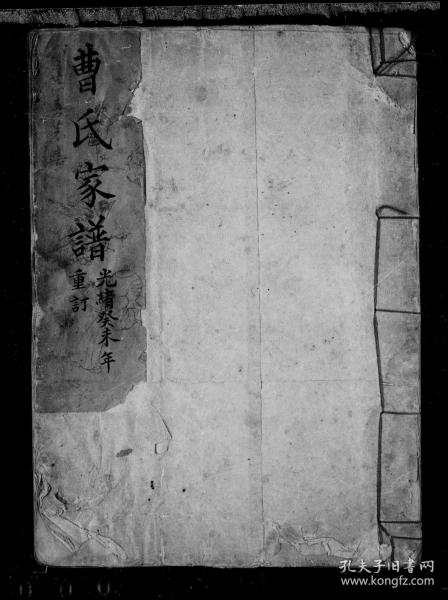 曹氏家譜
光緒癸未年
重訂
孔夫子旧书网
www.kongfz.com